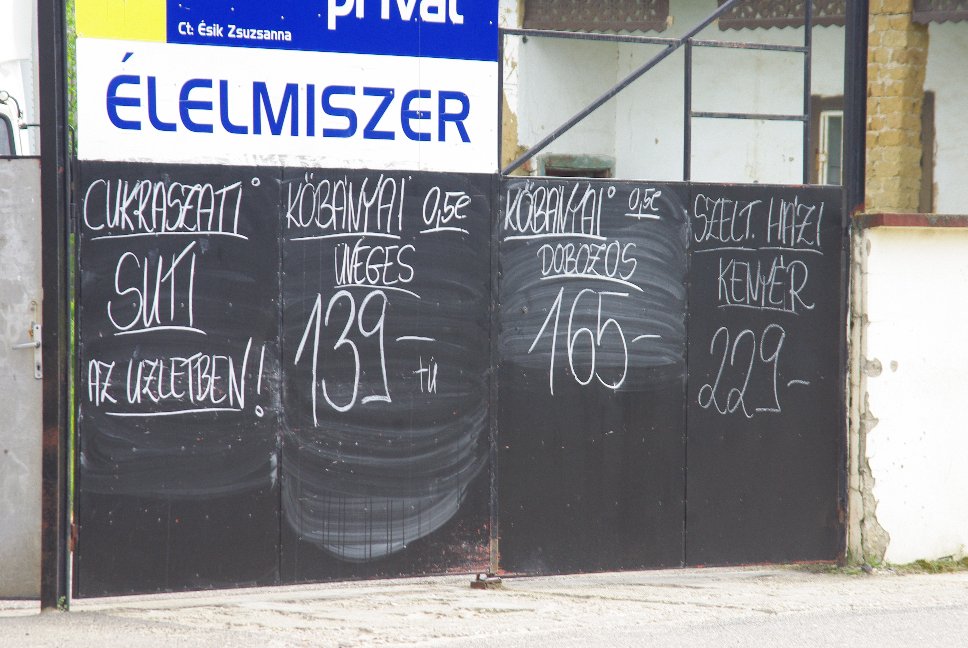 privát
Ct: Ésik Zsuzsanna
ÉLELMISZER
CUKRASZATI
SUTI
AZ UZLETBEN!
KŐBÁNYAI 0,5l
ÜVEGES
139-
+Ü
KŐBÁNYAI 0,5l
DOBOZOS
165-
SZELT. HÁZI
KENYÉR
229-